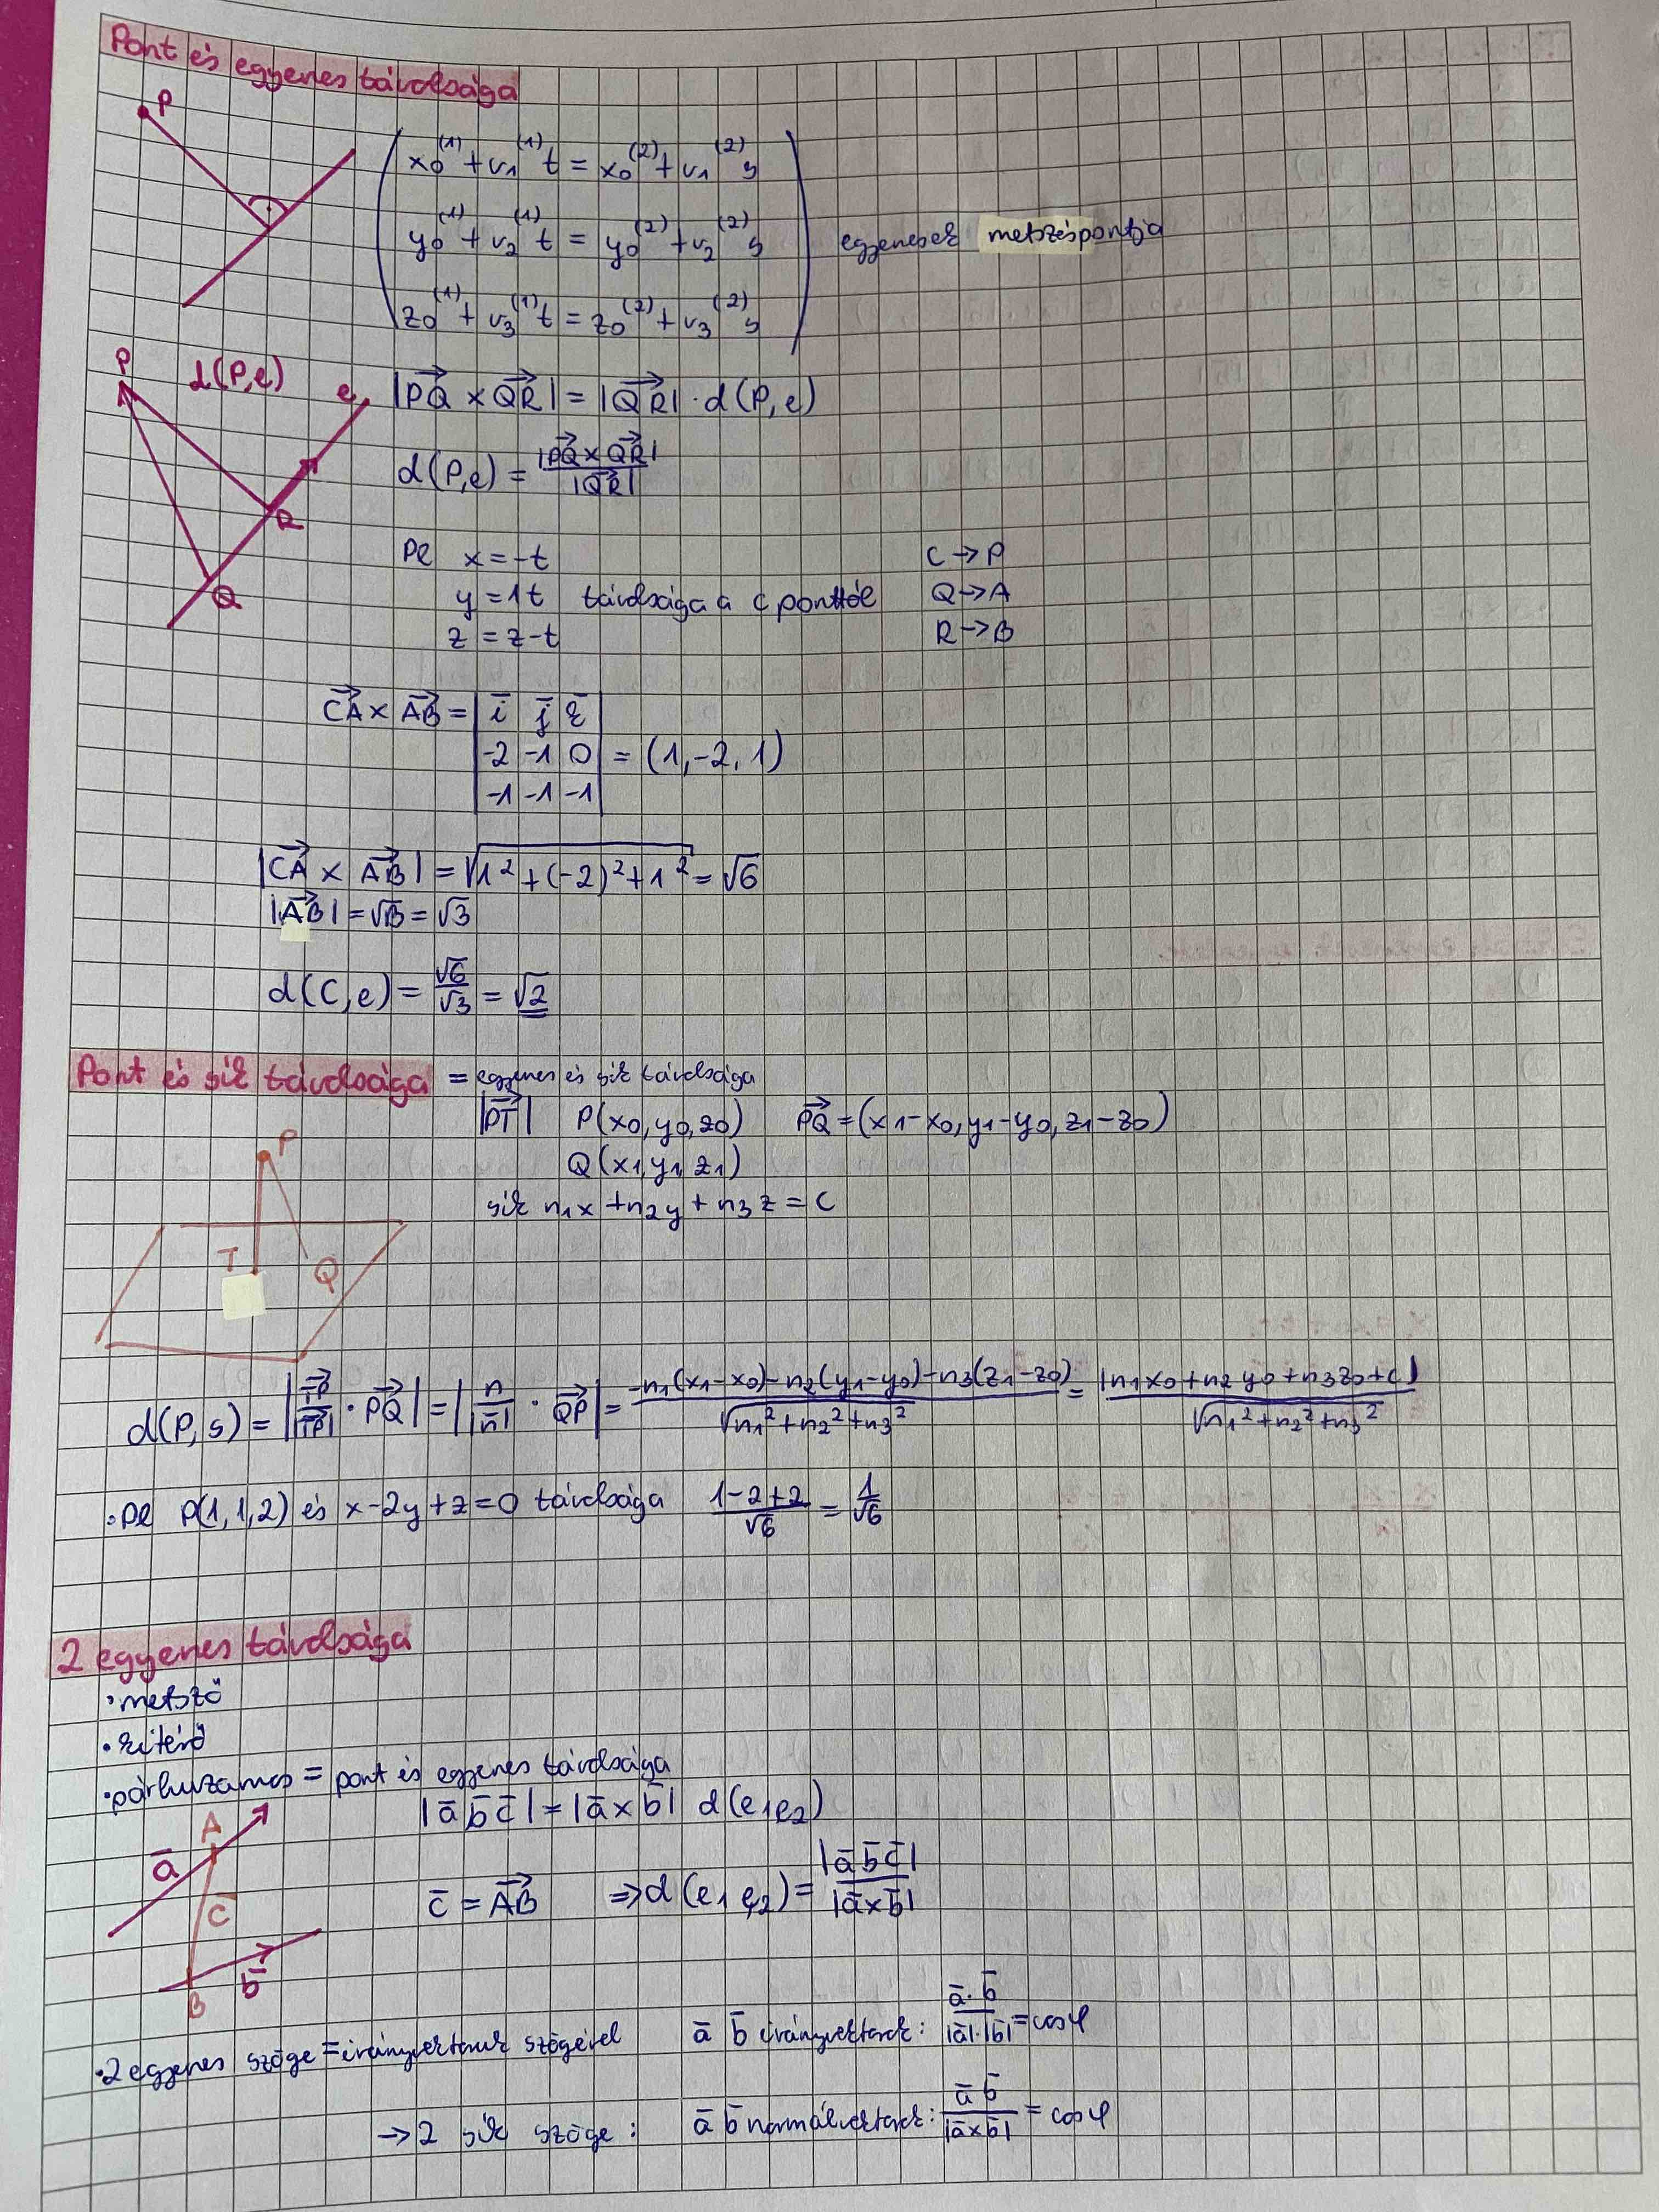 Pont és egyenes távolsága
P
x0^(1) + v1^(1) t = x0^(2) + v1^(2) s
y0^(1) + v2^(1) t = y0^(2) + v2^(2) s
egyenesek metszéspontja
z0^(1) + v3^(1) t = z0^(2) + v3^(2) s
P d(P,e) e
R
Q
|PQ × QR| = |QR| · d(P,e)
d(P,e) = |PQ × QR| / |QR|
Pl x = -t C → P
y = 1t távolsága a C ponttól Q → A
z = z-t R → B
CA × AB = | i j k |
| -2 -1 0 | = (1,-2,1)
| -1 -1 -1 |
|CA × AB| = √(1² + (-2)² + 1²) = √6
|AB| = √3 = √3
d(C,e) = √6/√3 = √2
Pont és sík távolsága = egyenes és sík távolsága
|PT| P(x0,y0,z0) PQ = (x1-x0, y1-y0, z1-z0)
Q(x1,y1,z1)
sík n1x + n2y + n3z = C
P
T Q
d(P,s) = |TP/|TP| · PQ| = |n/|n̄| · QP| = (-n1(x1-x0) - n2(y1-y0) - n3(z1-z0)) / √(n1² + n2² + n3²) = |n1x0 + n2y0 + n3z0 + c| / √(n1² + n2² + n3²)
· Pl P(1,1,2) és x-2y+z=0 távolsága (1-2+2)/√6 = 1/√6
2 egyenes távolsága
· metsző
· kitérő
· párhuzamos = pont és egyenes távolsága
|ā b̄ c̄| = |ā × b̄| d(e1e2)
A
ā
c̄
b̄
B
c̄ = AB ⇒ d(e1 e2) = |ā b̄ c̄| / |ā × b̄|
· 2 egyenes szöge = irányvektaur szögével ā b̄ irányvektorok: ā · b̄ / |ā|·|b̄| = cosφ
→ 2 sík szöge: ā b̄ normálvektorok: ā b̄ / |ā × b̄| = cosφ